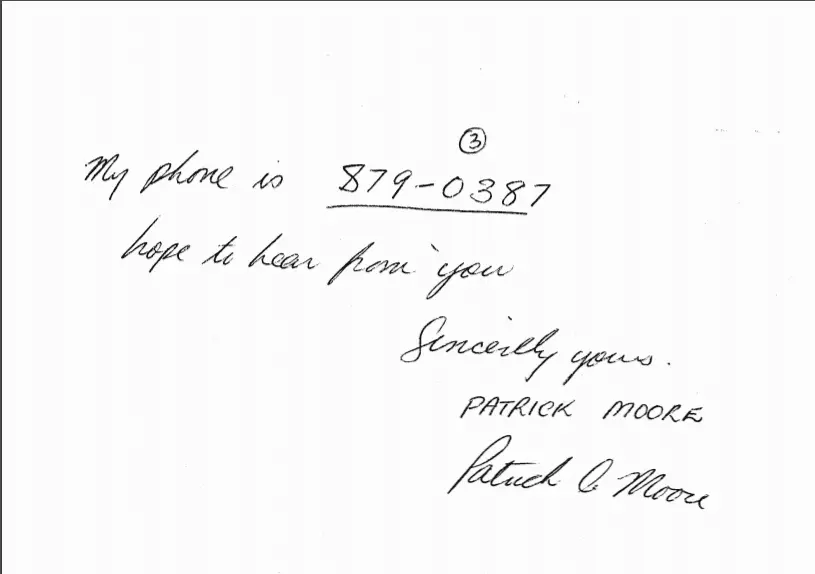 ③
My phone is 879-0387
hope to hear from you
Sincerely yours.
PATRICK MOORE
Patrick Moore